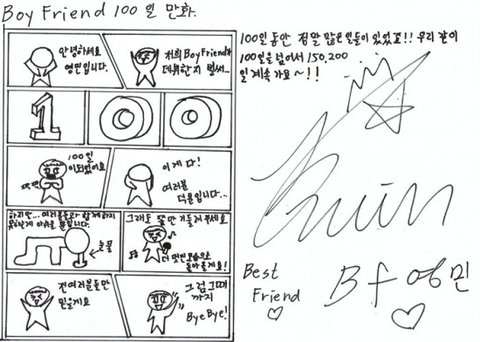 Boy Friend 100일 만화.
안녕하세요
영민입니다.
저희 BoyFriend가
데뷔한지 벌써..
100
100일
이 되었어요
이게 다!
여러분
덕분입니다...
하지만... 여러분들과 함께하지
못하는게 아쉬울 뿐입니다.
눈물
그래도 조금만 기다려주세요
더 멋진 모습으로
돌아올게요!
전 여러분들만
믿을게요
그럼 그때
까지
ByeBye!
100일 동안 정말 많은 일들이 있었죠!! 우리 같이
100일을 넘어서 150,200
일 계속 가요~!!
Best
Friend
Bf 영민